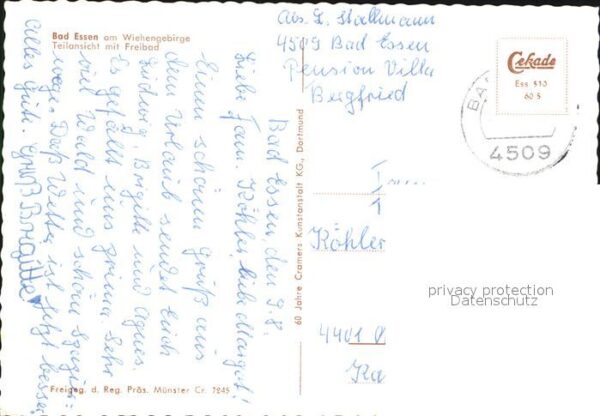 Bad Essen am Wiehengebirge
Teilansicht mit Freibad
Bad Essen, den 9.8.
Liebe Fam. Köhler, liebe Margret!
Einen schönen Gruß aus
dem Urlaub sendet Euch
Ludwig, Brigitte und Agnes.
Es gefällt uns prima. Sehr
viel Wald und schöne Spazier=
wege. Das Wetter ist jetzt besser.
Alles Gute. Gruß Brigitte
Freigeg. d. Reg. Präs. Münster Cr. 7245
60 Jahre Cramers Kunstanstalt KG., Dortmund
Abs. L. Stallmann
4509 Bad Essen
Pension Villa
Bergfried
Cekade
Ess 510
60 S
BA
4509
Köhler
privacy protection
Datenschutz
4401